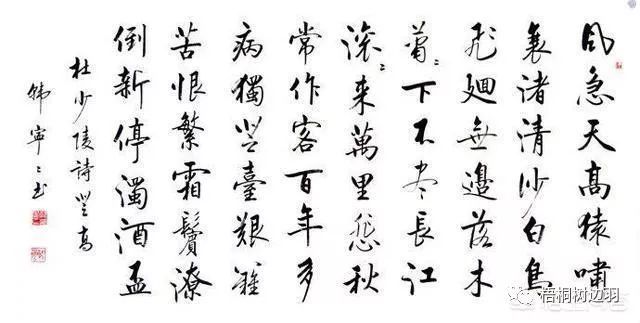 风急天高猿嘯
哀渚清沙白鳥
飛廻無邊落木
蕭〻下不尽長江
滚〻来萬里悲秋
常作客百年多
病獨登臺艱難
苦恨繁霜鬢潦
倒新停濁酒盃
杜少陵詩登高
韩寧〻书
梧桐树边羽